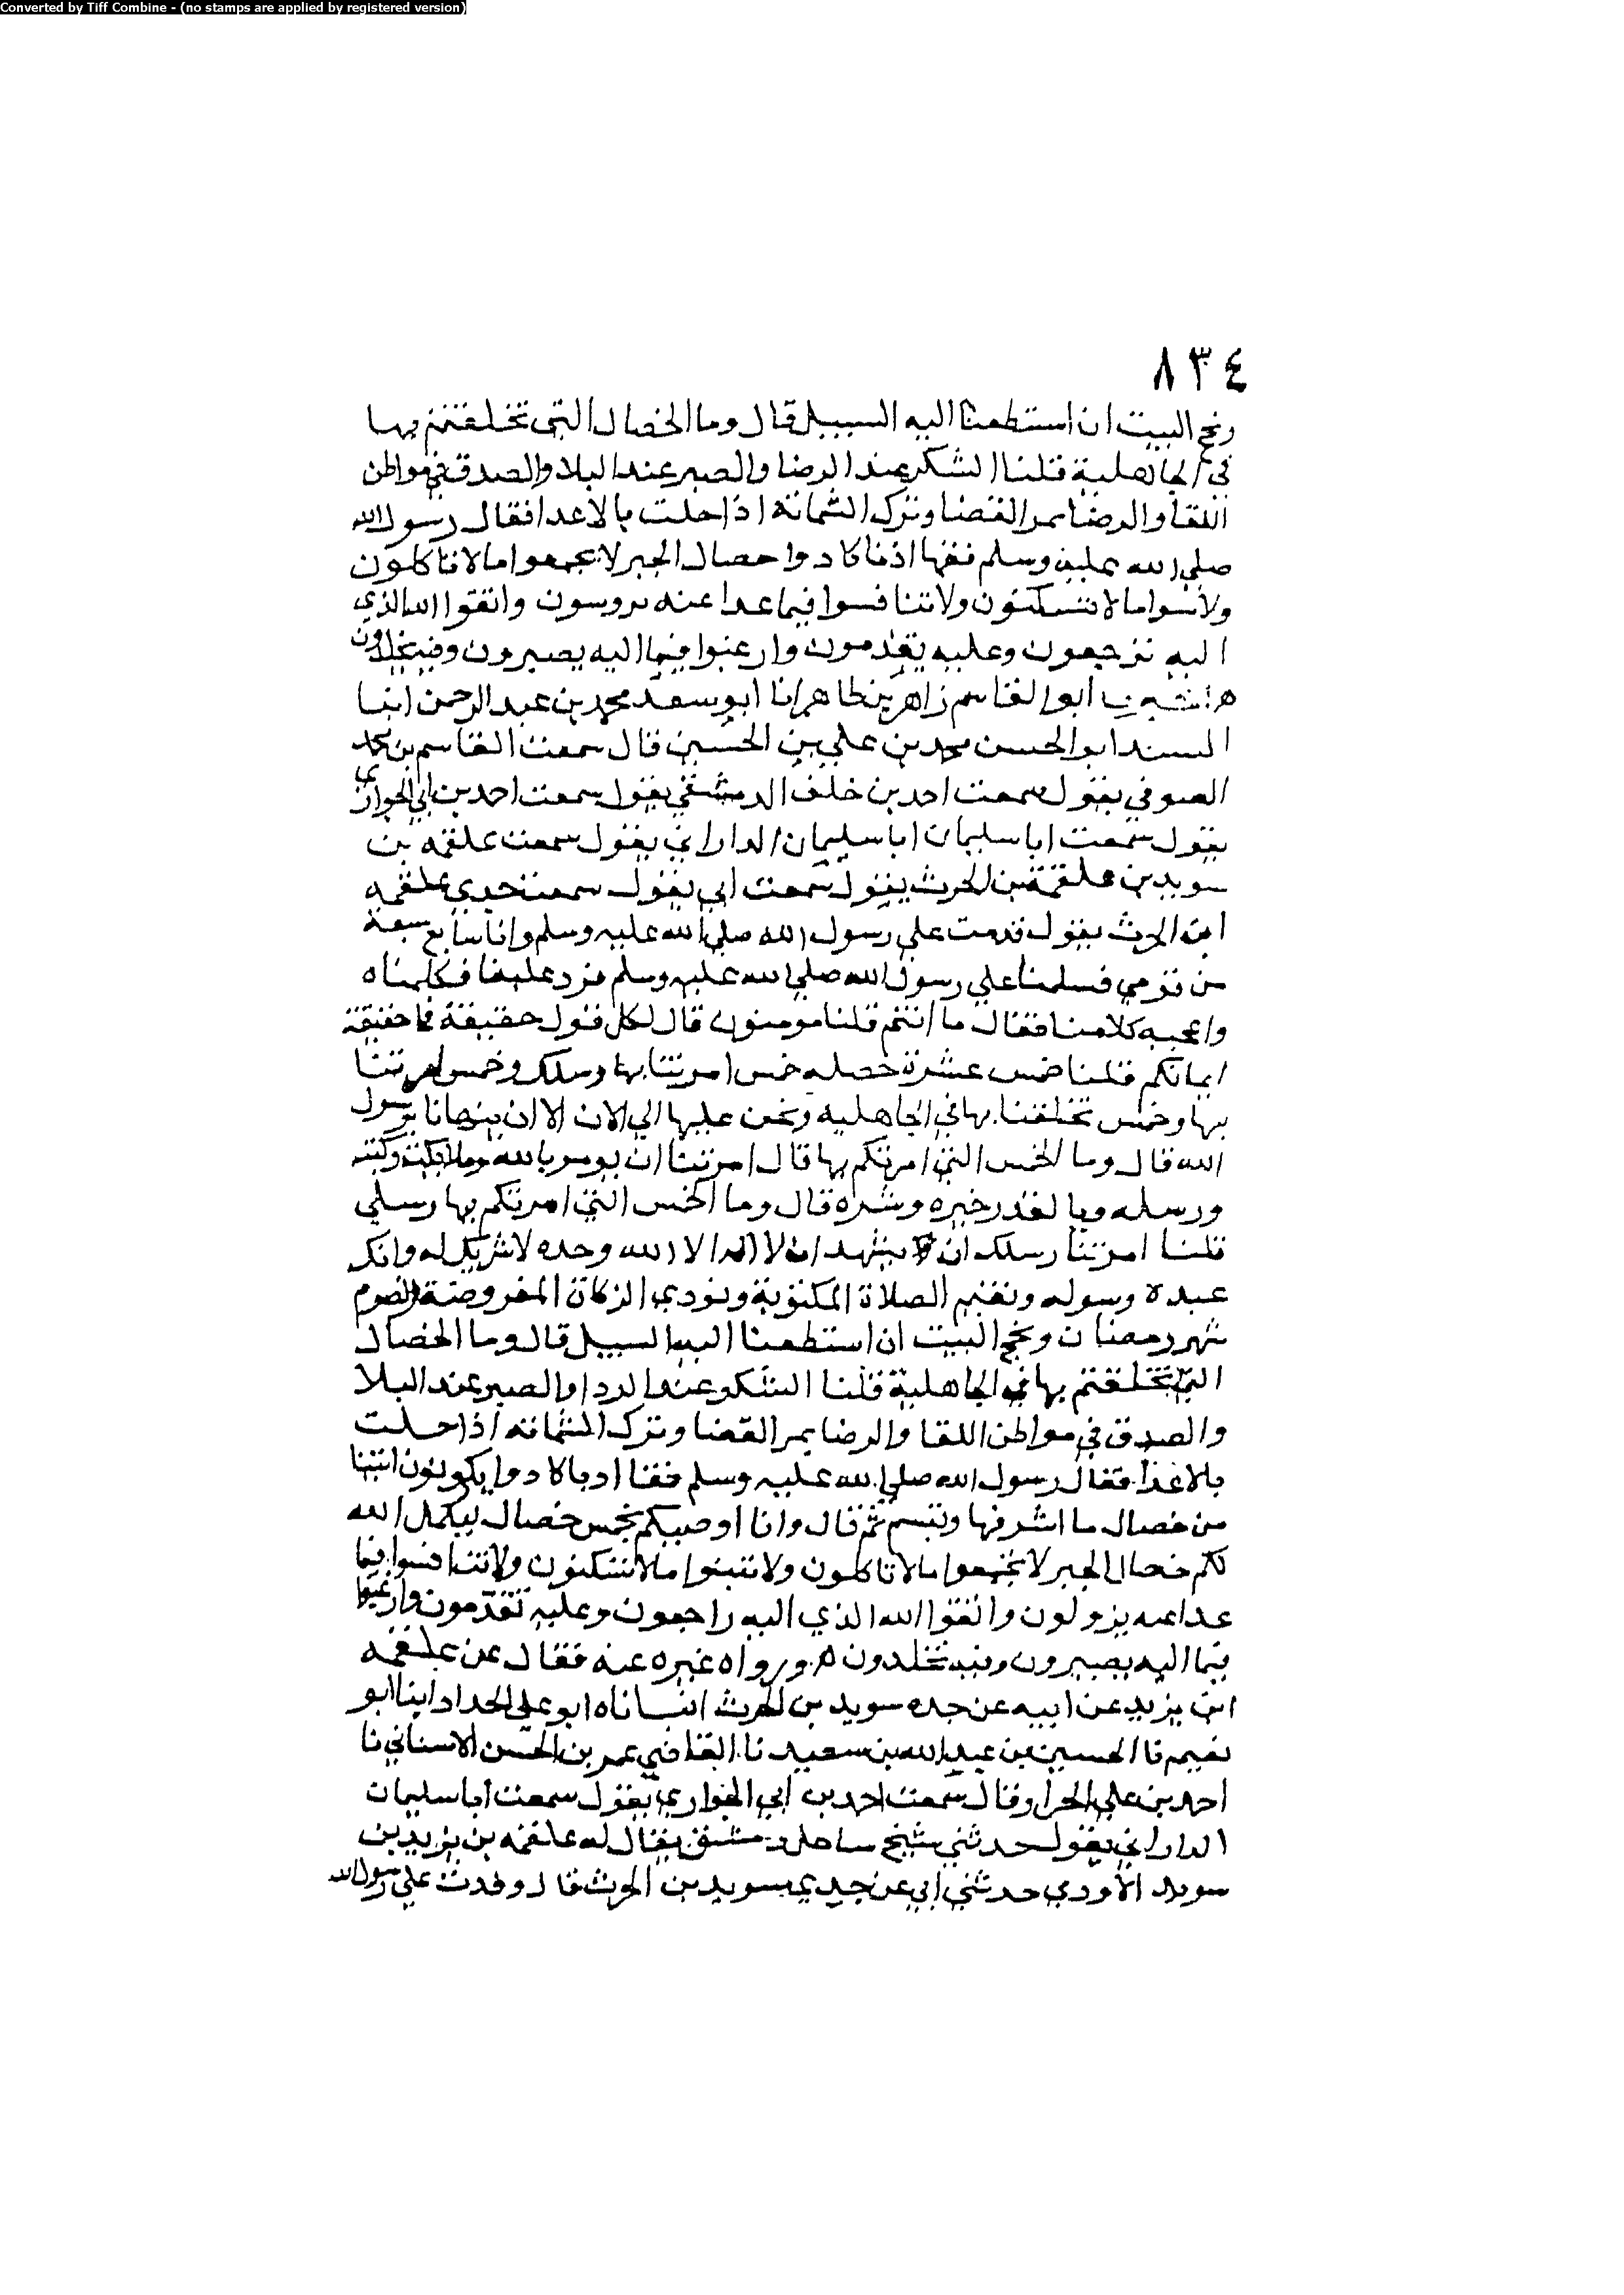 Converted by Tiff Combine - (no stamps are applied by registered version)
٨٣٤
ونحج البيت ان استطعنا اليه السبيل قال وما الخصال التي تخلقتم بها
في الجاهلية قلنا الشكر عند الرضا والصبر عند البلا والصدق في مواطن
اللقا والرضا بمر القضا وترك الشماتة اذا حلت بالاعدا فقال رسول الله
صلي الله عليه وسلم فقها ادبا كادوا خصال الخير لا تجمعوا ما لا تاكلون
ولا تبنوا ما لا تسكنون ولا تنافسوا فيما غدا عنه تزولون واتقوا الله الذي
اليه ترجعون وعليه تقدمون وارغبوا فيما اليه يصيرون وفيه تخلدون
ابو القاسم زاهر بن طاهر انا ابو سعد محمد بن عبد الرحمن ابنا
السيد ابو الحسن محمد بن علي بن الحسين قال سمعت القاسم بن محمد
الصوفي يقول سمعت احمد بن خلف الدمشقي يقول سمعت احمد بن ابي الحواري
يقول سمعت ابا سليمان ابا سليمان الداراني يقول سمعت علقمه بن
سويد بن علقمة بن الحرث يقول سمعت ابي يقول سمعت جدي علقمه
ابن الحرث يقول قدمت علي رسول الله صلي الله عليه وسلم وانا سابع سبعة
من قومي فسلمنا علي رسول الله صلي الله عليه وسلم فرد علينا فكلمناه
واعجبه كلامنا فقال ما انتم قلنا مومنون قال لكل قول حقيقة فما حقيقة
ايمانكم قلنا خمس عشرة خصله خمس امرتنا بها رسلك وخمس امرتنا
بها وخمس تخلقنا بها في الجاهليه ونحن عليها الي الان الا ان ينهانا رسول
الله قال وما الخمس التي امرتكم بها قال امرتنا ان نومن بالله وملائكته وكتبه
ورسله وبالقدر خيره وشره قال وما الخمس التي امرتكم بها رسلي
قلنا امرتنا رسلك ان نشهد ان لا اله الا الله وحده لا شريك له وانك
عبده ورسوله ونقيم الصلاة المكتوبة ونودي الزكاة المفروضة ونصوم
شهر رمضان ونحج البيت ان استطعنا اليه السبيل قال وما الخصال
التي تخلقتم بها في الجاهلية قلنا الشكر عند الرخا والصبر عند البلا
والصدق في مواطن اللقا والرضا بمر القضا وترك الشماته اذا حلت
بالاعدا فقال رسول الله صلي الله عليه وسلم فقها ادبا كادوا يكونون انبيا
من خصال ما اشرفها وتبسم ثم قال وانا اوصيكم بخمس خصال ليكمل الله
لكم خصال الخير لا تجمعوا ما لا تاكلون ولا تبنوا ما لا تسكنون ولا تنافسوا فيما
غدا عنه تزولون واتقوا الله الذي اليه راجعون وعليه تقدمون وارغبوا
فيما اليه يصيرون وفيه تخلدون ورواه غيره عنه فقال عن علقمه
ابن يزيد عن ابيه عن جده سويد بن الحرث انباناه ابو علي الحداد ابنا ابو
نعيم نا الحسين بن عبد الله بن سعيد نا القاضي عمر بن الحسن الاسناني نا
احمد بن علي الخراز قال سمعت احمد بن ابي الحواري يقول سمعت ابا سليمان
الداراني يقول حدثني شيخ بساحل دمشق يقال له علقمه بن يزيد بن
سويد الاودي حدثني ابي عن جدي سويد بن الحرث قال وفدت علي رسول الله